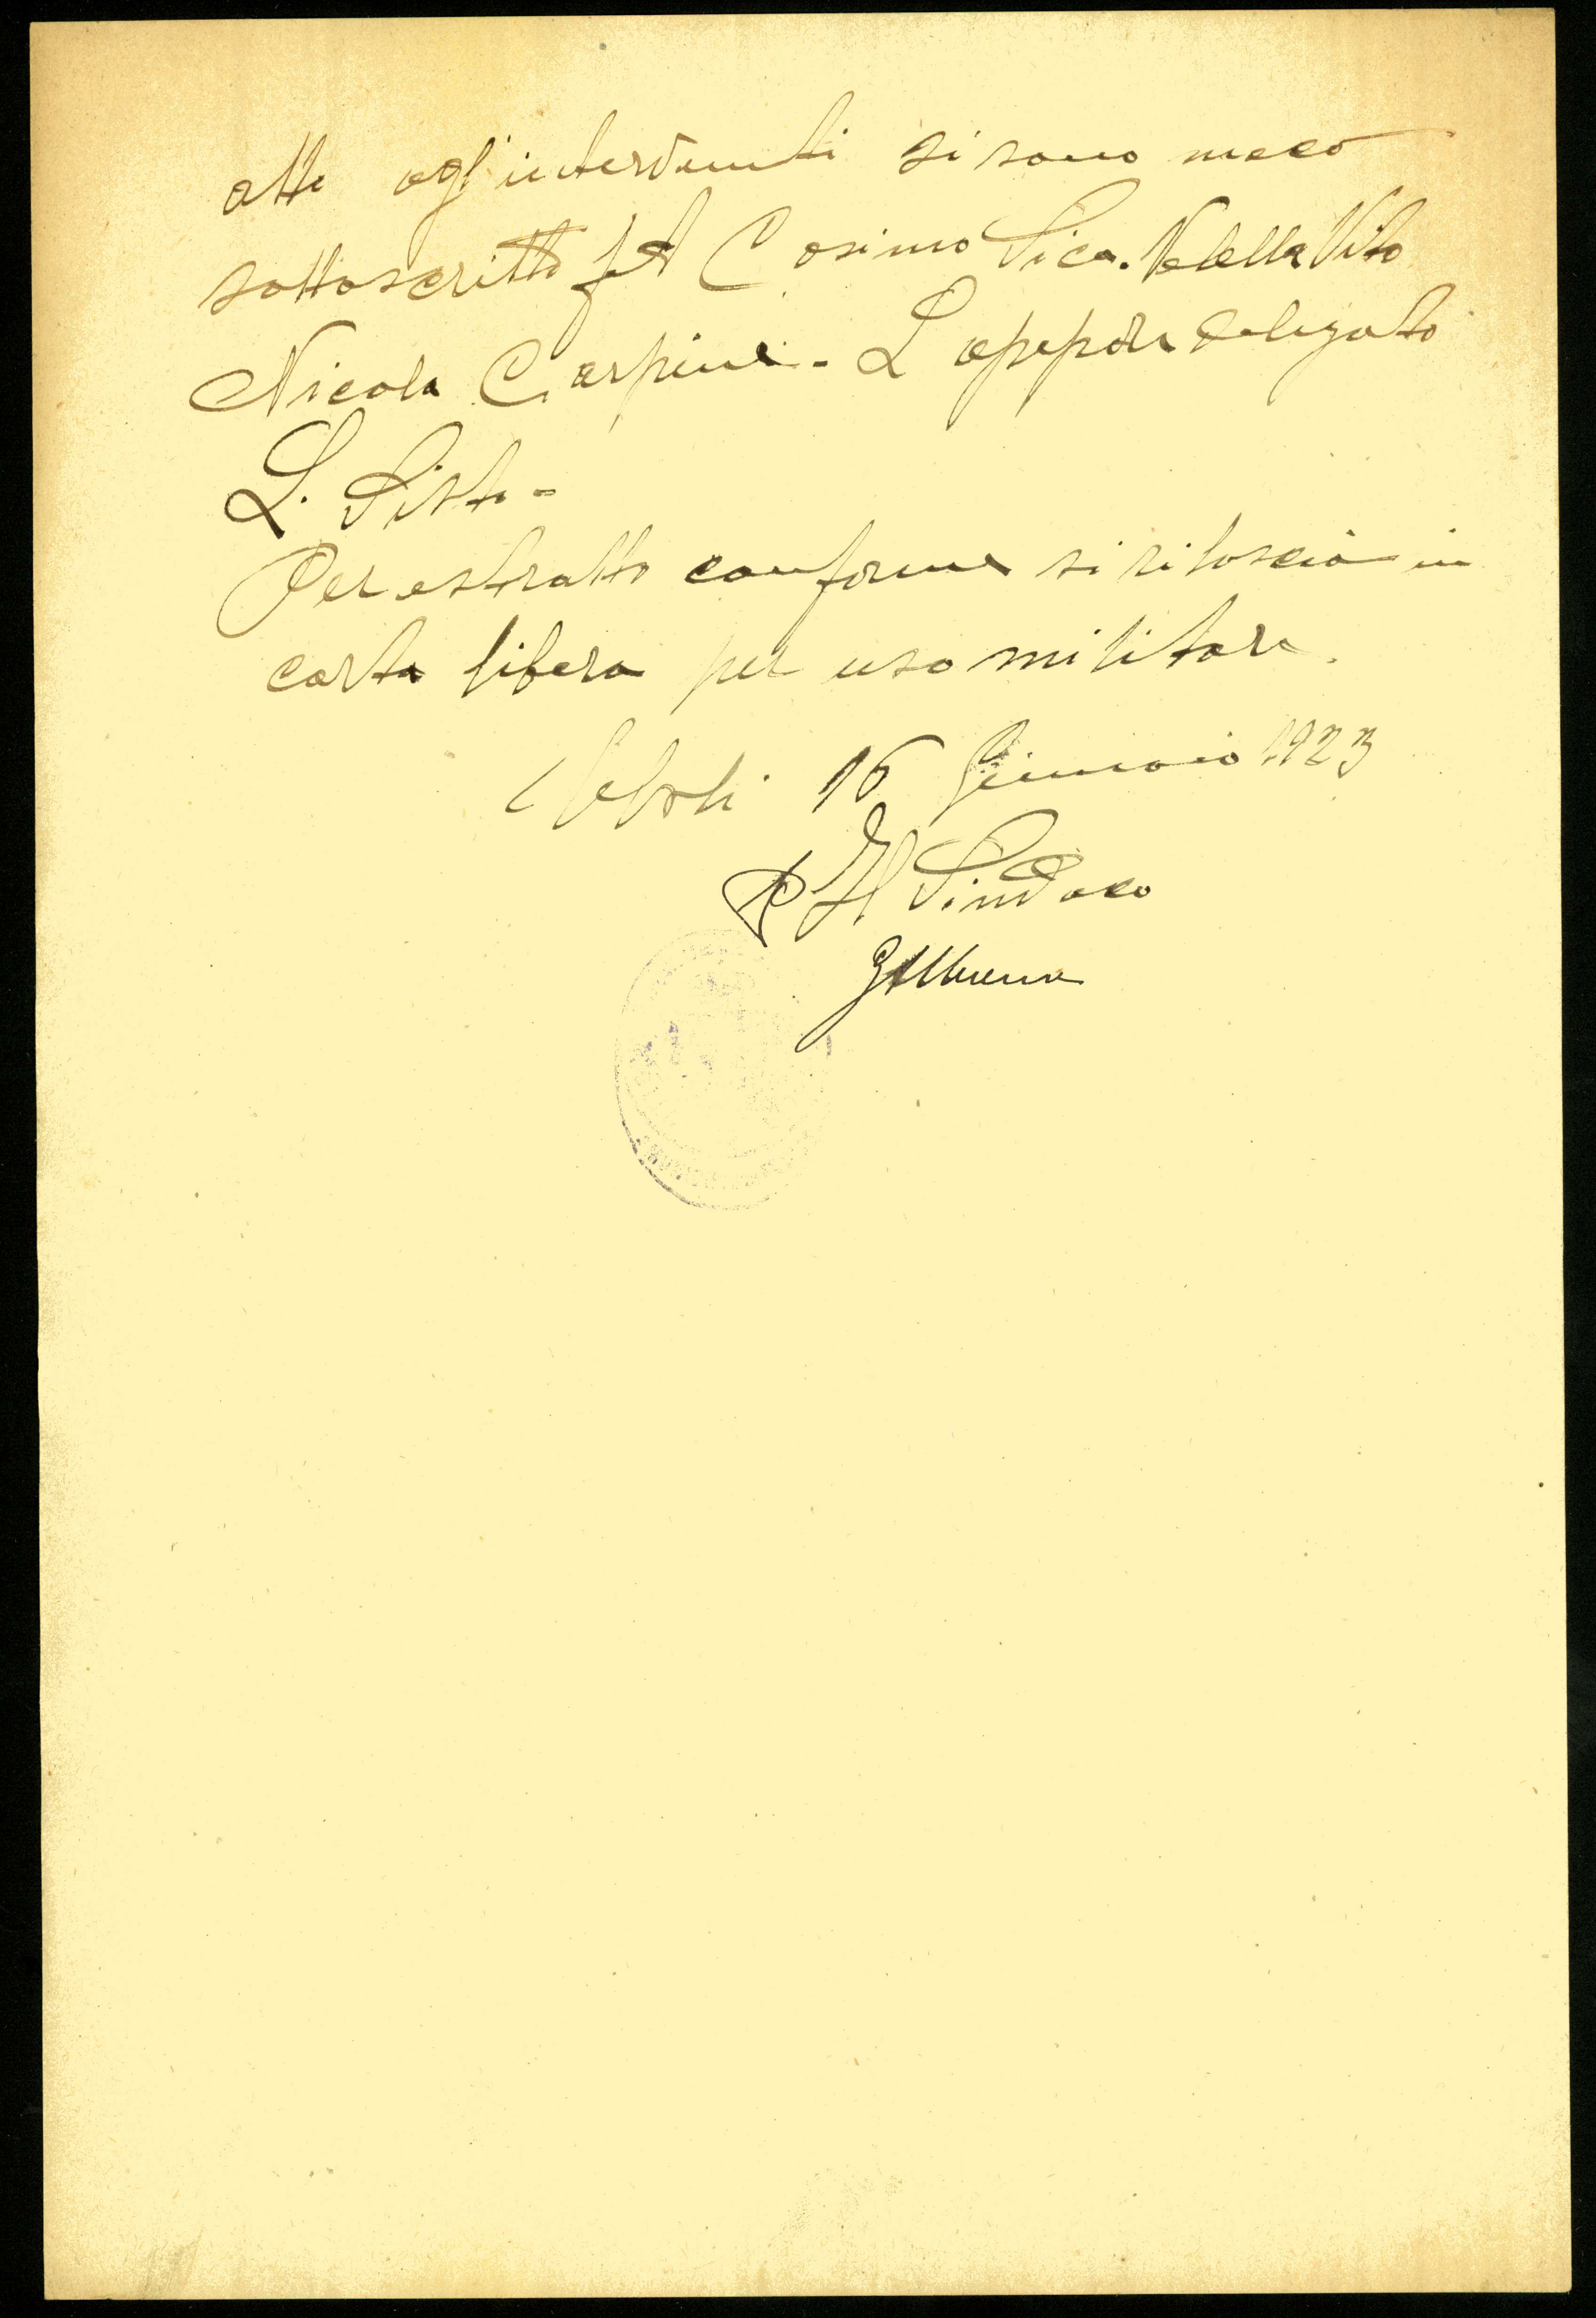 atto agl'intervenuti si sono meco
sottoscritto ft Cosimo Sica. Valella Vito
Nicola Carpine. L'assessore delegato
L. Sisto.
Per estratto conforme si rilascia in
carta libera per uso militare.
16 Gennaio 1923
Il Sindaco